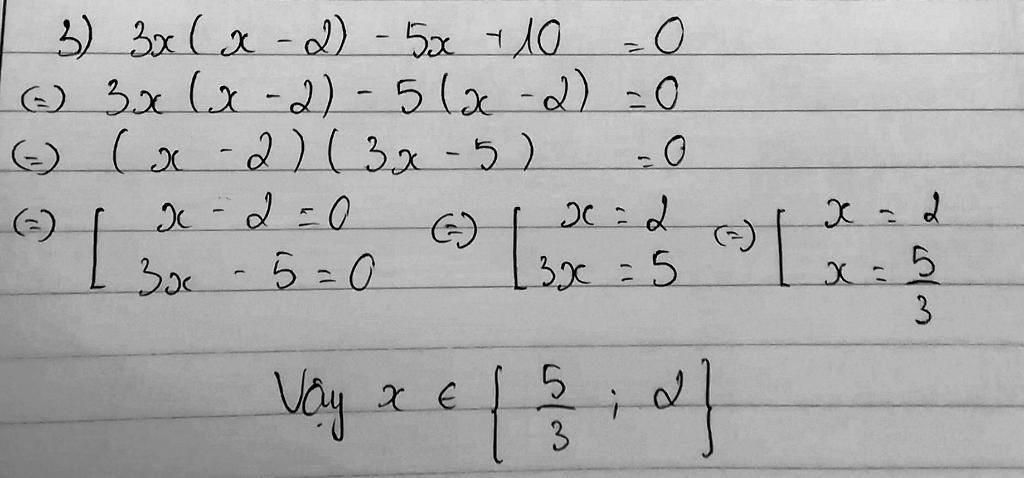 3) 3x(x - 2) - 5x + 10 = 0
(=) 3x(x - 2) - 5(x - 2) = 0
(=) (x - 2)(3x - 5) = 0
(=) [ x - 2 = 0 (=) [ x = 2 (=) [ x = 2
3x - 5 = 0 3x = 5 x = 5/3
Vậy x ∈ { 5/3 ; 2 }